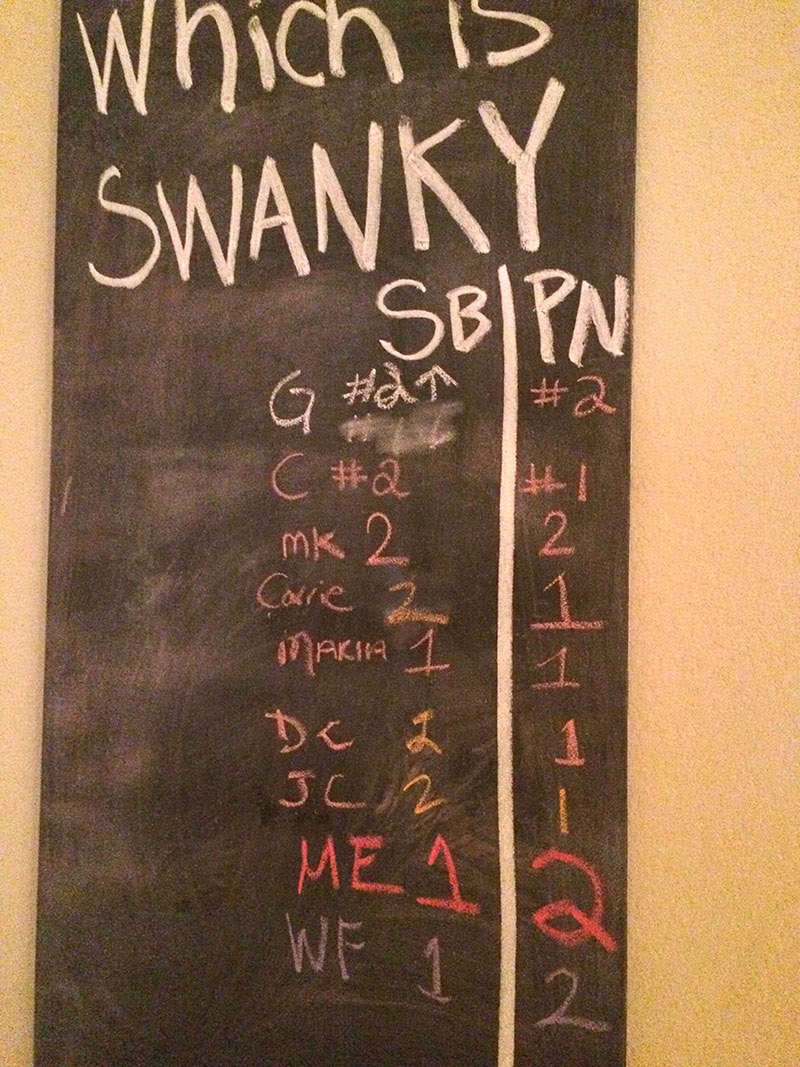 Which is
SWANKY
SB PN
G #2↑ #2
C #2 #1
MK 2 2
Carrie 2 1
MARIA 1 1
DC 2 1
JC 2 1
ME 1 2
WF 1 2